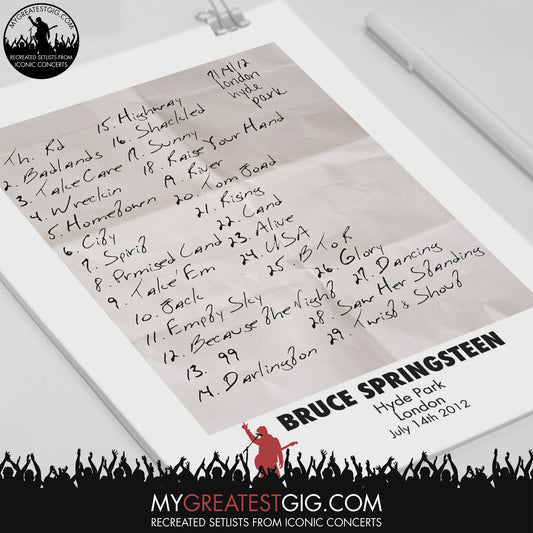 MYGREATESTGIG.COM
RECREATED SETLISTS FROM
ICONIC CONCERTS
7/14/12
London
Hyde
Park
Th. Rd
2. Badlands
3. Take Care
4. Wreckin
5. Hometown
6. City
7. Spirit
8. Prmised Land
9. Take 'Em
10. Jack
11. Empty Sky
12. Because the Night
13. 99
14. Darlington
15. Highway
16. Shackled
17. Sunny
18. Raise Your Hand
19. River
20. Tom Joad
21. Rising
22. Land
23. Alive
24. USA
25. BToR
26. Glory
27. Dancing
28. Saw Her Standing
29. Twist & Shout
BRUCE SPRINGSTEEN
Hyde Park
London
July 14th 2012
MYGREATESTGIG.COM
RECREATED SETLISTS FROM ICONIC CONCERTS